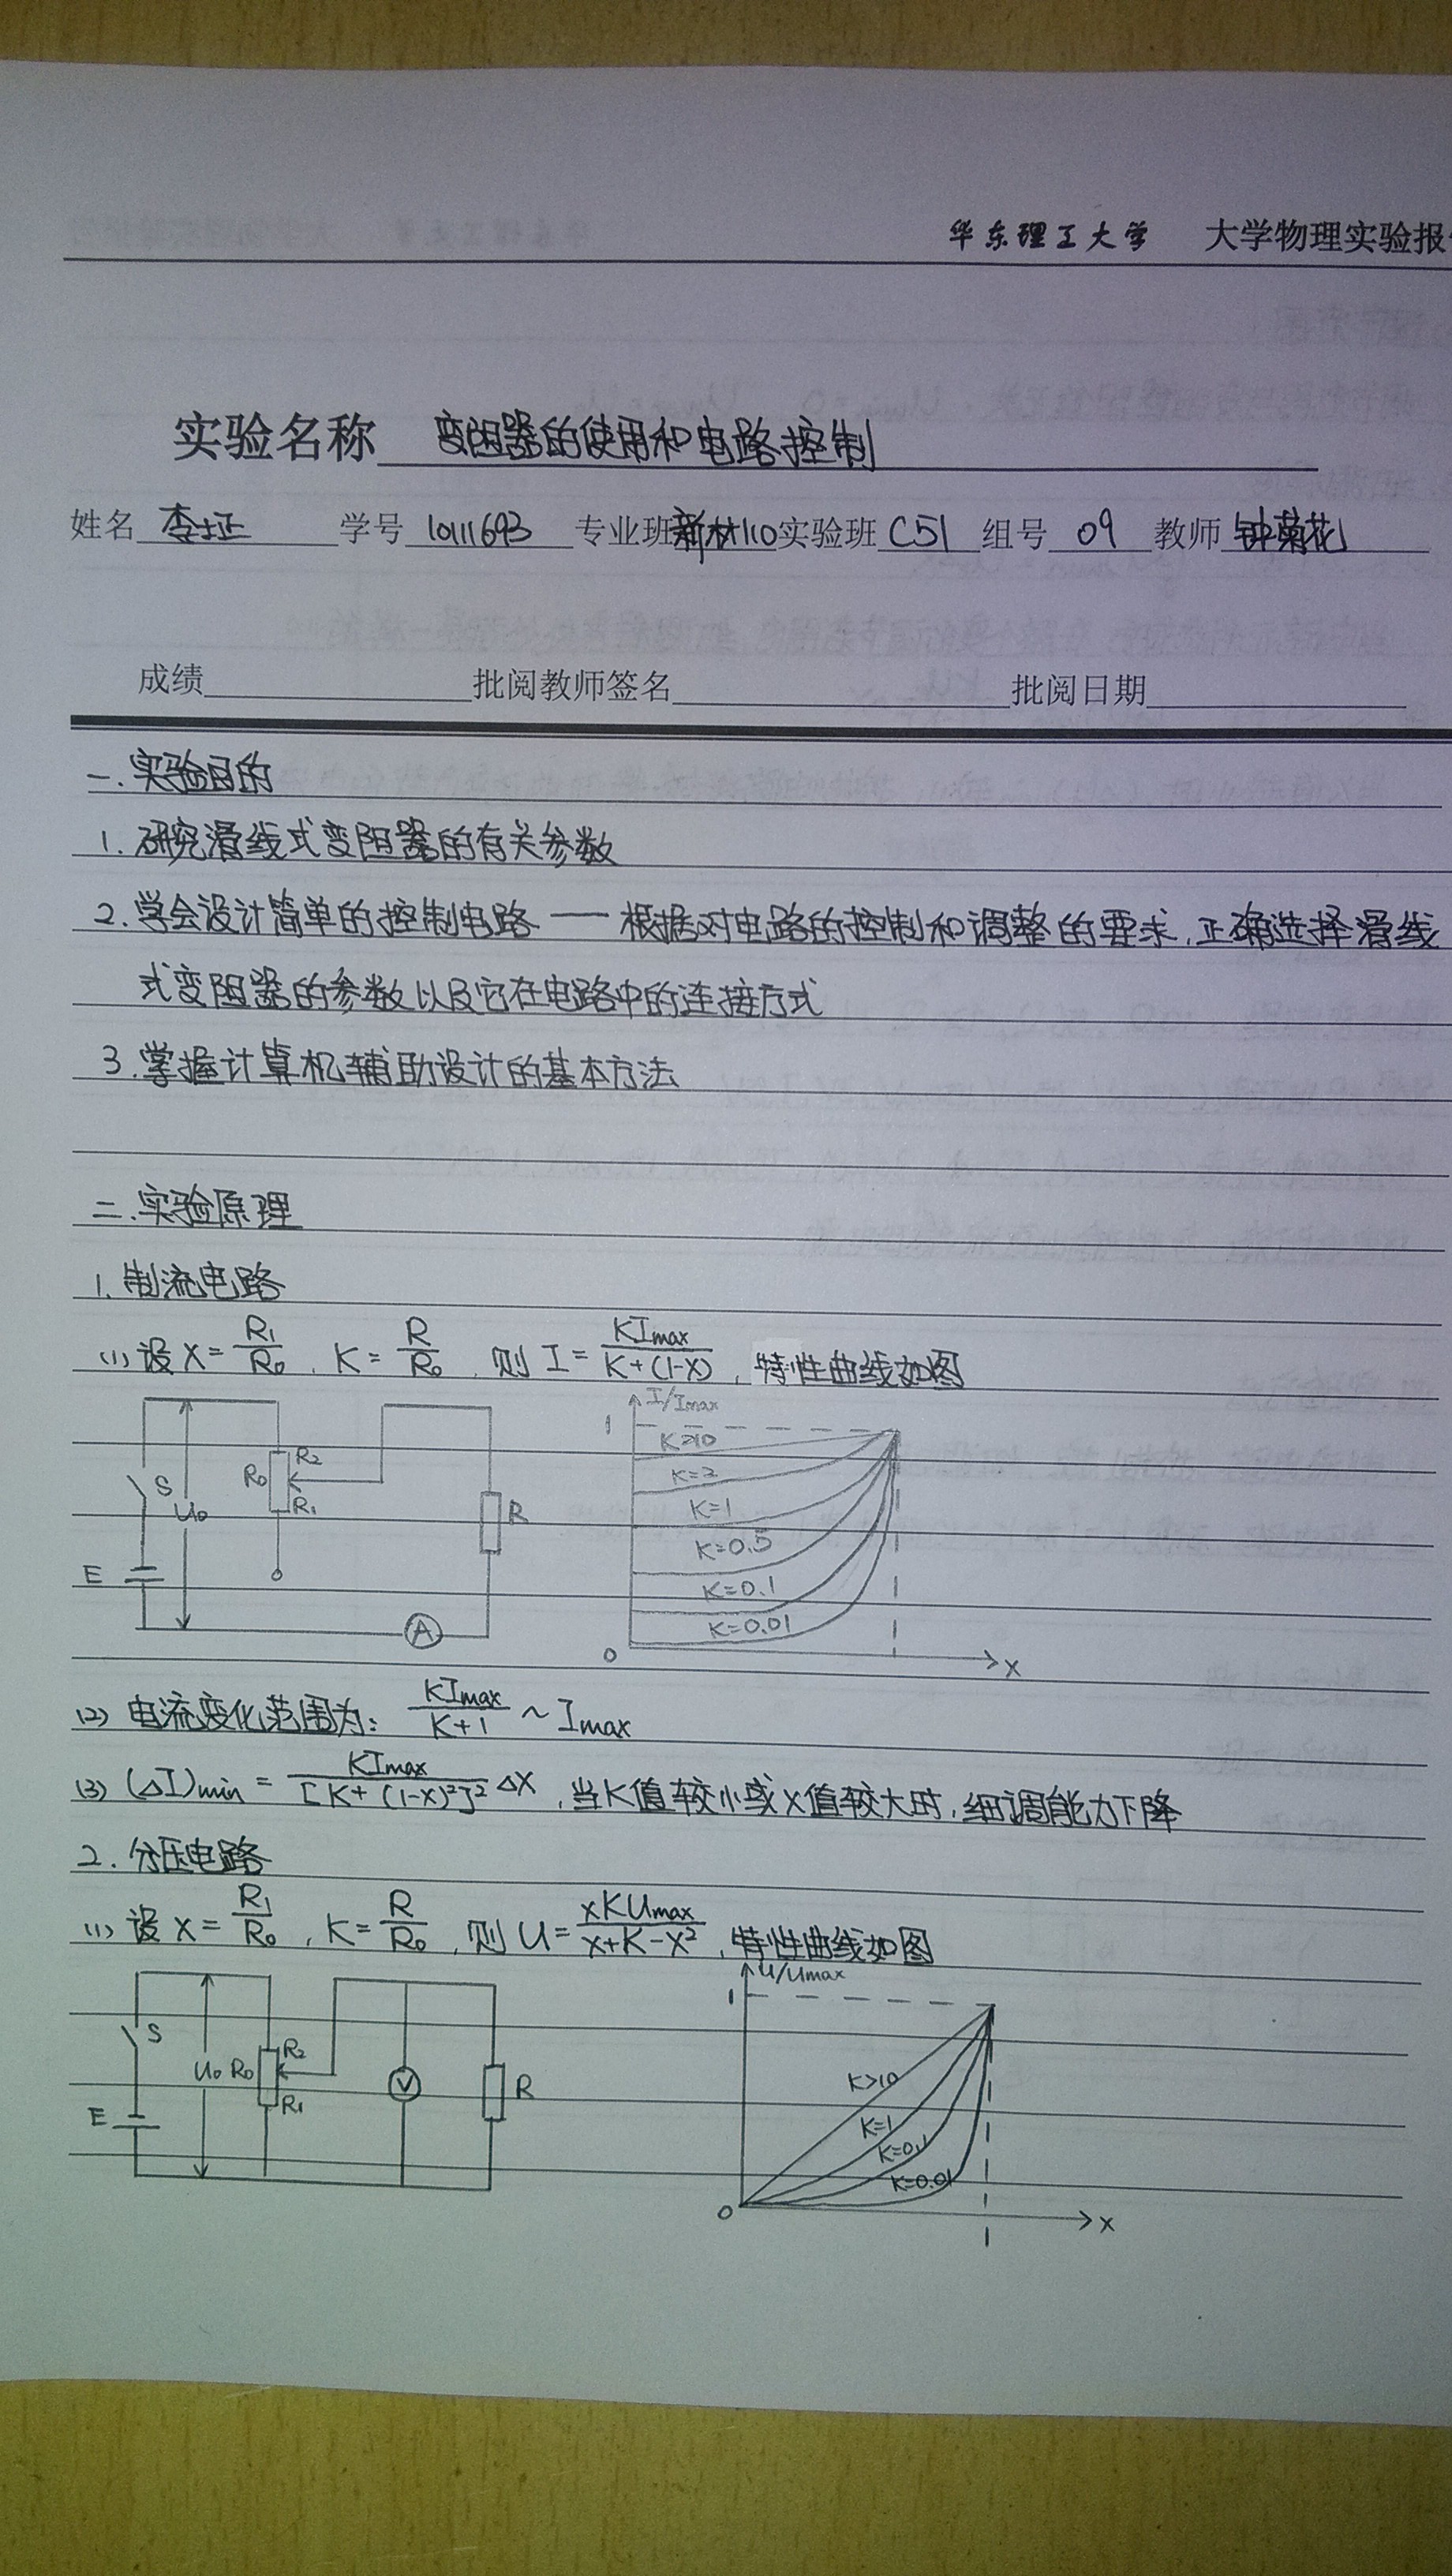 华东理工大学 大学物理实验报
实验名称 变阻器的使用和电路控制
姓名 李証 学号 10111693 专业班 新材110 实验班 C51 组号 09 教师 钟菊花
成绩 批阅教师签名 批阅日期
一.实验目的
1.研究滑线式变阻器的有关参数
2.学会设计简单的控制电路——根据对电路的控制和调整的要求,正确选择滑线
式变阻器的参数以及它在电路中的连接方式
3.掌握计算机辅助设计的基本方法
二.实验原理
1.制流电路
(1)设 X=R₁/R₀, K=R/R₀, 则 I=KImax/(K+(1-X)), 特性曲线如图
S U₀ E R₀ R₂ R₁ R A
I/Imax
1
K>10
K=2
K=1
K=0.5
K=0.1
K=0.01
0 X
(2)电流变化范围为: KImax/(K+1) ~ Imax
(3)(ΔI)min = KImax/[K+(1-X)²]² ΔX, 当K值较小或X值较大时,细调能力下降
2.分压电路
(1)设 X=R₁/R₀, K=R/R₀, 则 U=xKUmax/(x+K-X²), 特性曲线如图
S U₀ E R₀ R₂ R₁ V R
U/Umax
1
K>10
K=1
K=0.1
K=0.01
0 X
1